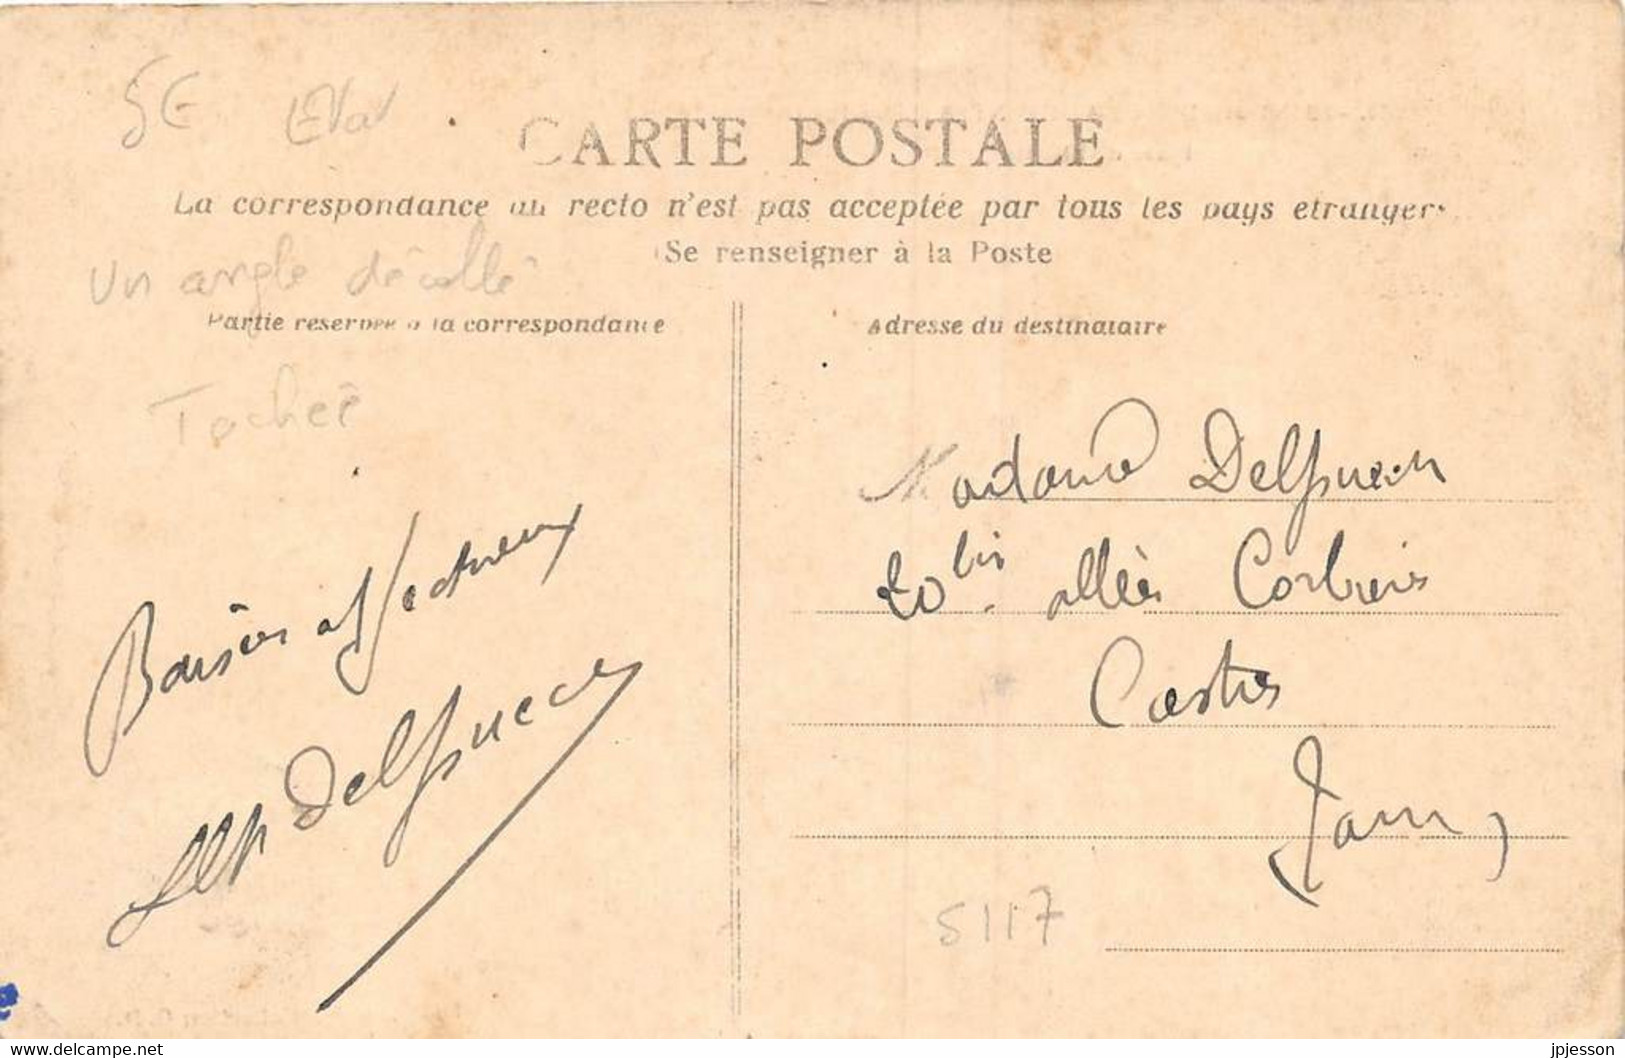 5€ Etat
CARTE POSTALE
La correspondance au recto n'est pas acceptée par tous les pays étrangers
(Se renseigner à la Poste
Un angle décollé
Partie réservée à la correspondance
Adresse du destinataire
Tachée
Baisers affectueux
Delpuech
Madame Delpuech
20 bis allées Corbière
Castres
(Tarn)
5117
www.delcampe.net
jpjesson